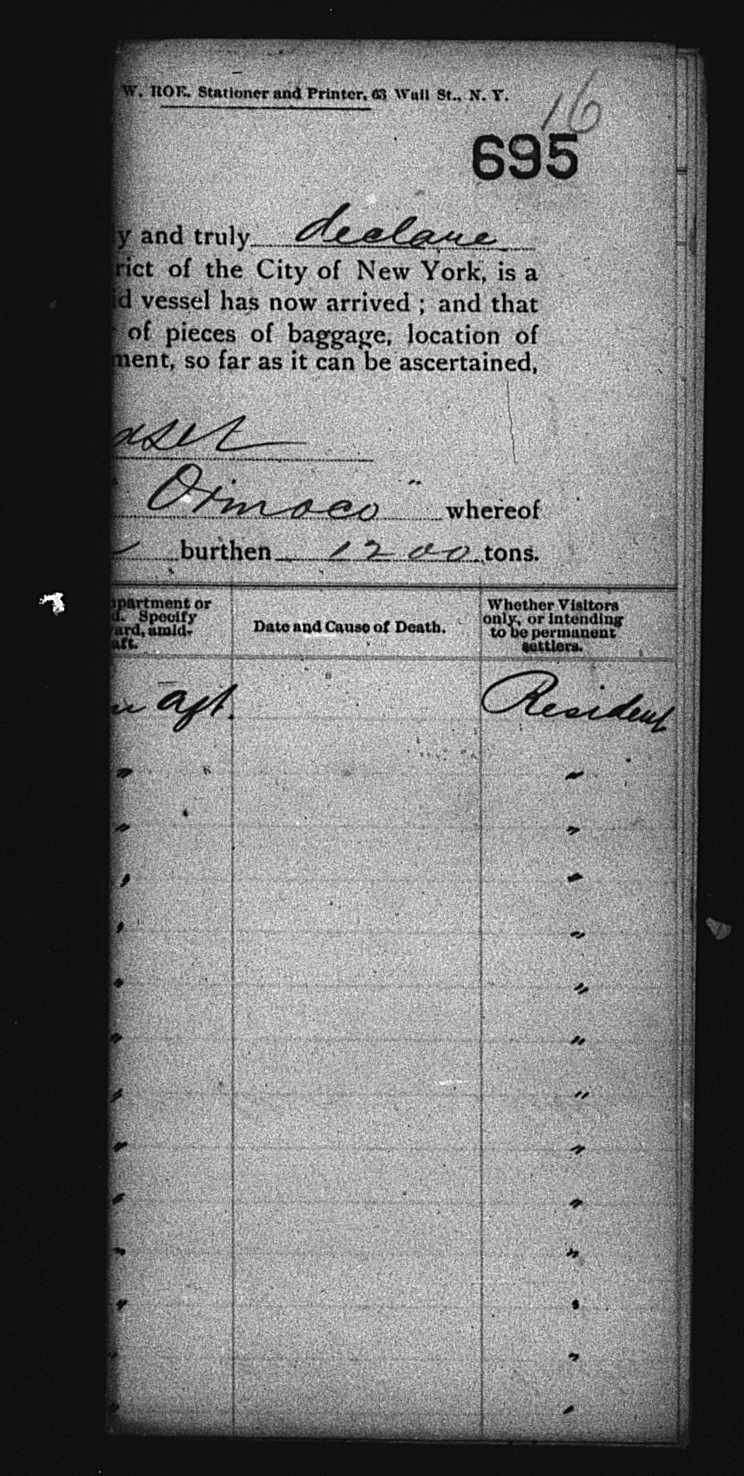 W. ROE. Stationer and Printer, 63 Wall St., N. Y.
16
695
y and truly declare
rict of the City of New York, is a
id vessel has now arrived ; and that
of pieces of baggage, location of
ment, so far as it can be ascertained,
" Orinoco " whereof
burthen 1200 tons.
partment or
d. Specify
ard, amid-
aft.
Date and Cause of Death.
Whether Visitors
only, or intending
to be permanent
settlers.
aft. Resident
" "
" "
" "
" "
" "
" "
" "
" "
" "
" "
" "
" "
" "